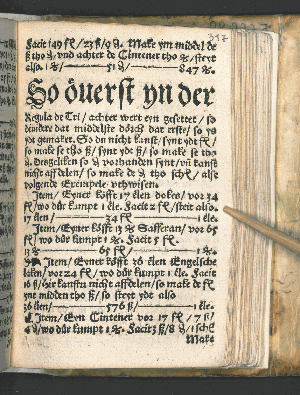 347
Facit 149 fl / 23 ß / 9 ₰. Make yn middel de
ß tho ₰ / vnd achter de Cintener tho
also.
So öuerst yn der
Regula de Tri / achter wert eyn gesettet / so
diuidere dat middelste dörch dat erste / so ys
ydt gemaket. So du nicht kanst / synt ydt fl /
so make se tho ß / synt ydt ß / so make se tho
₰. Desgeliken so ₰ vorhanden synt / vñ kanst
nicht affdelen / so make de ₰ tho schƐ / alse
volgende Exempele vthwisen.
Item / Eyner köfft 17 elen dokes / vor 34
fl / wo dür kumpt 1 ele. Facit 2 fl / steit also.
17 elen 34 fl 1 ele.
Item / Eyner köfft 13 Safferan / vor 65
fl / wo dür kumpt 1 Facit 5 fl.
13 65 fl 1
Item / Eyner köfft 36 elen Engelsche
laken / vor 24 fl / wo dür kumpt 1 ele. Facit
16 ß / hir kanstu nicht affdelen / so make de fl
yne midden tho ß / so steyt ydt also
36 elen 576 ß 1 ele.
Item / Eyn Cintener vor 17 fl / 7 ß /
4 ₰ / wo dür kumpt 1 Facit 3 ß / 8 ₰ /
Make